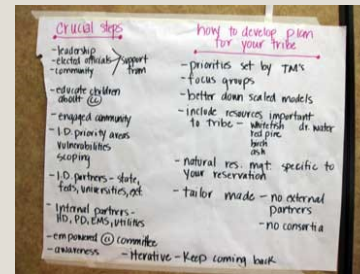 crucial steps
- leadership
- elected officials > support from
- community
- educate children
about (cc)
- engaged community
- I.D. priority areas
vulnerabilities
scoping
- I.D. partners - state,
feds, universities, ect
- Internal partners -
HD, PD, EMS, utilities
- empowered (cc) committee
- awareness
- iterative - Keep coming back
how to develop plan
for your tribe
- priorities set by TM's
- focus groups
- better down scaled models
- include resources important
to tribe - whitefish dr. water
red pine
birch
ash
- natural res. mgt. specific to
your reservation
- tailor made - no external
partners
- no consortia